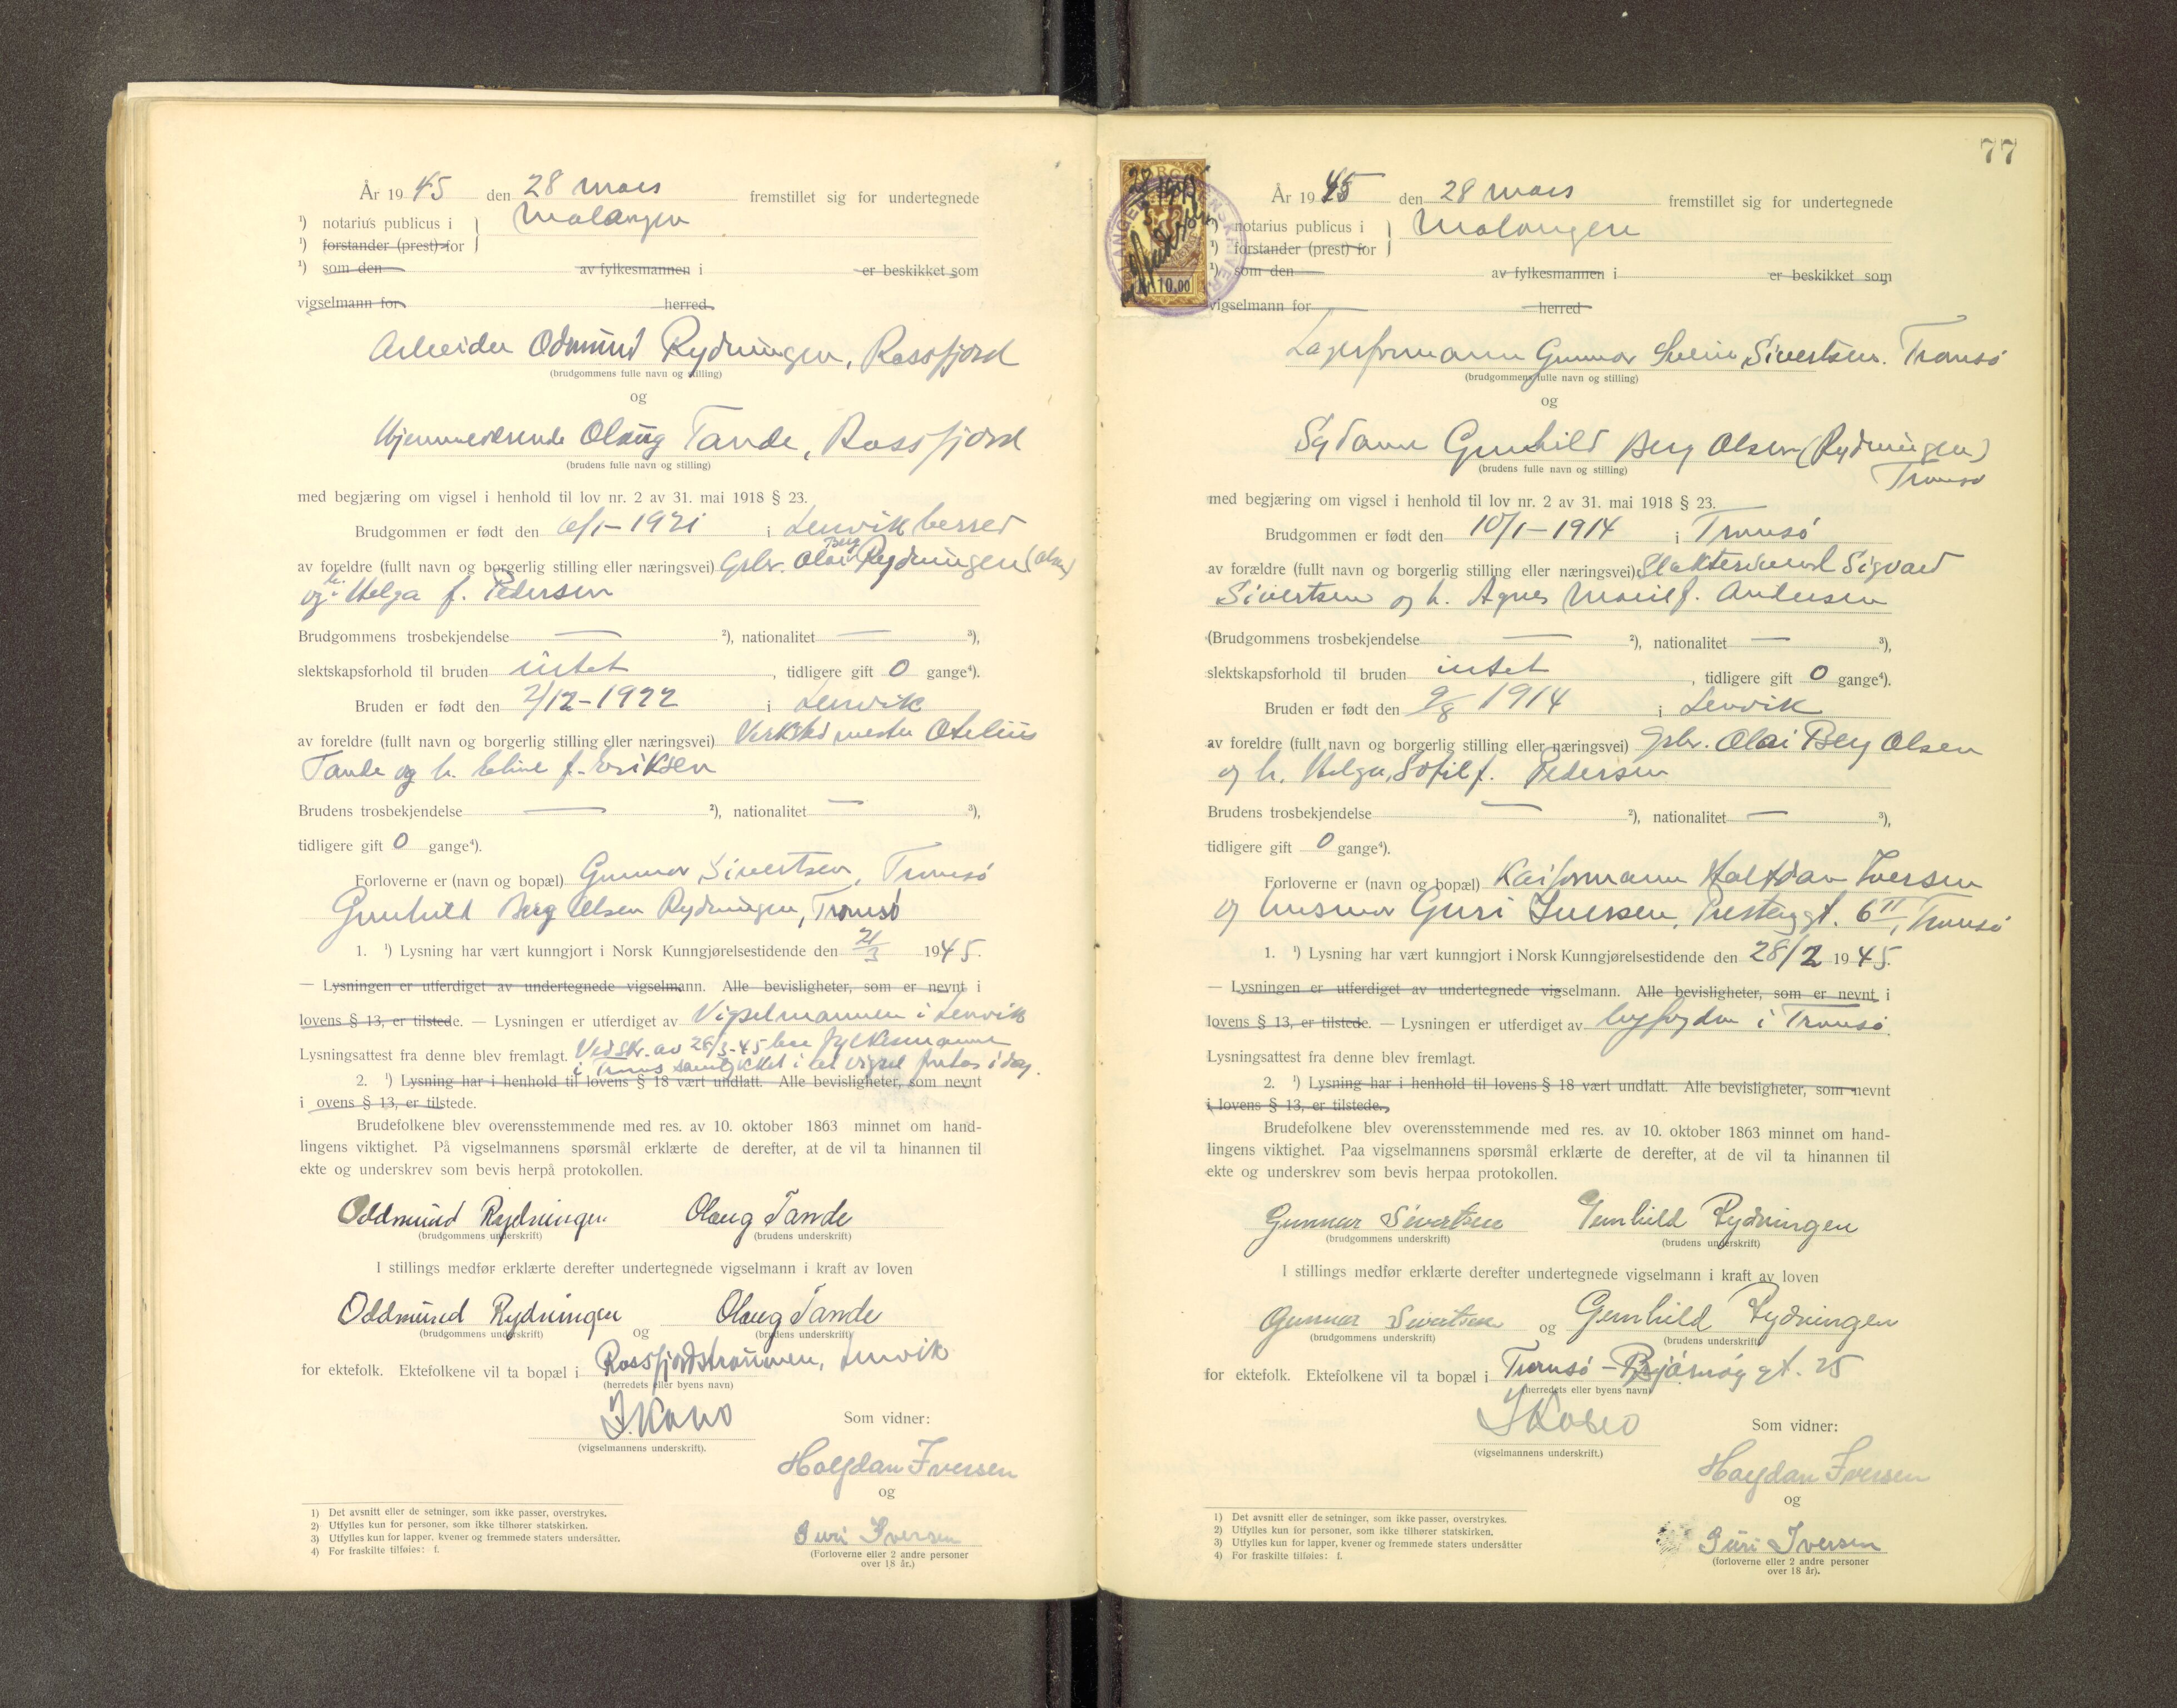 År 1945 den 28 mars fremstillet sig for undertegnede
¹) notarius publicus i } Malangen
¹) forstander (prest) for
¹) som den av fylkesmannen i er beskikket som
vigselmann for herred
Arbeider Odmund Rydningen, Rossfjord
(brudgommens fulle navn og stilling)
og
Hjemmeværende Olaug Tande, Rossfjord
(brudens fulle navn og stilling)
med begjæring om vigsel i henhold til lov nr. 2 av 31. mai 1918 § 23.
Brudgommen er født den 6/1-1921 i Lenvik herred
av foreldre (fullt navn og borgerlig stilling eller næringsvei) Gbr. Olai Berg Rydningen (Olsen)
og h. Helga f. Pedersen
Brudgommens trosbekjendelse — ²), nationalitet — ³),
slektskapsforhold til bruden intet, tidligere gift 0 gange⁴).
Bruden er født den 2/12-1922 i Lenvik
av foreldre (fullt navn og borgerlig stilling eller næringsvei) Verkstedmester Otelius
Tande og h. Eline f. Eriksen
Brudens trosbekjendelse — ²), nationalitet — ³),
tidligere gift 0 gange⁴).
Forloverne er (navn og bopæl) Gunnar Sivertsen, Tromsø
Gunhild Berg Olsen Rydningen, Tromsø
1. ¹) Lysning har vært kunngjort i Norsk Kunngjørelsestidende den 21/3 1945.
— Lysningen er utferdiget av undertegnede vigselmann. Alle bevisligheter, som er nevnt i
lovens § 13, er tilstede. — Lysningen er utferdiget av Vigselmannen i Lenvik
Lysningsattest fra denne blev fremlagt. Ved skr. av 28/3-45 har fylkesmannen
i Troms samtykket i at vigsel foretas i dag.
2. ¹) Lysning har i henhold til lovens § 18 vært undlatt. Alle bevisligheter, som nevnt
i ovens § 13, er tilstede.
Brudefolkene blev overensstemmende med res. av 10. oktober 1863 minnet om hand-
lingens viktighet. På vigselmannens spørsmål erklærte de derefter, at de vil ta hinannen til
ekte og underskrev som bevis herpå protokollen.
Oddmund Rydningen Olaug Tande
(brudgommens underskrift) (brudens underskrift)
I stillings medfør erklærte derefter undertegnede vigselmann i kraft av loven
Oddmund Rydningen og Olaug Tande
(brudgommens underskrift) (brudens underskrift)
for ektefolk. Ektefolkene vil ta bopæl i Rossfjordstraumen, Lenvik
(herredets eller byens navn)
Som vidner:
(vigselmannens underskrift).
Halfdan Iversen
og
Guri Iversen
(Forloverne eller 2 andre personer
over 18 år.)
1) Det avsnitt eller de setninger, som ikke passer, overstrykes.
2) Utfylles kun for personer, som ikke tilhører statskirken.
3) Utfylles kun for lapper, kvener og fremmede staters undersåtter.
4) For fraskilte tilføies: f.
77
10.00
År 1945 den 28 mars fremstillet sig for undertegnede
notarius publicus i } Malangen
¹) forstander (prest) for
¹) som den av fylkesmannen i er beskikket som
vigselmann for herred
Lagerformann Gunnar Sivertsen. Tromsø
(brudgommens fulle navn og stilling)
og
Sydame Gunhild Berg Olsen (Rydningen)
Tromsø
(brudens fulle navn og stilling)
med begjæring om vigsel i henhold til lov nr. 2 av 31. mai 1918 § 23.
Brudgommen er født den 10/1-1914 i Tromsø
av forældre (fullt navn og borgerlig stilling eller næringsvei) Sigvard
Sivertsen og h. Agnes Marie f. Andersen
(Brudgommens trosbekjendelse — ²), nationalitet — ³),
slektskapsforhold til bruden intet, tidligere gift 0 gange⁴).
Bruden er født den 9/8 1914 i Lenvik
av foreldre (fullt navn og borgerlig stilling eller næringsvei) Gbr. Olai Berg Olsen
og h. Helga Sofie f. Pedersen
Brudens trosbekjendelse — ²), nationalitet — ³),
tidligere gift 0 gange⁴).
Forloverne er (navn og bopæl) Kaiformann Halfdan Iversen
og husmor Guri Iversen, Presteng gt. 6 II, Tromsø
1. ¹) Lysning har vært kunngjort i Norsk Kunngjørelsestidende den 28/2 1945.
— Lysningen er utferdiget av undertegnede vigselmann. Alle bevisligheter, som er nevnt i
lovens § 13, er tilstede. — Lysningen er utferdiget av byfogden i Tromsø.
Lysningsattest fra denne blev fremlagt.
2. ¹) Lysning har i henhold til lovens § 18 vært undlatt. Alle bevisligheter, som nevnt
i lovens § 13, er tilstede.
Brudefolkene blev overensstemmende med res. av 10. oktober 1863 minnet om hand-
lingens viktighet. Paa vigselmannens spørsmål erklærte de derefter, at de vil ta hinannen til
ekte og underskrev som bevis herpaa protokollen.
Gunnar Sivertsen Gunhild Rydningen
(brudgommens underskrift) (brudens underskrift)
I stillings medfør erklærte derefter undertegnede vigselmann i kraft av loven
Gunnar Sivertsen og Gunhild Rydningen
(brudgommens underskrift) (brudens underskrift)
for ektefolk. Ektefolkene vil ta bopæl i Tromsø - gt. 25
(herredets eller byens navn)
Som vidner:
(vigselmannens underskrift.)
Halfdan Iversen
og
Guri Iversen
(forloverne eller 2 andre personer
over 18 år).
1) Det avsnitt eller de setninger, som ikke passer, overstrykes.
2) Utfylles kun for personer, som ikke tilhører statskirken.
3) Utfylles kun for lapper, kvener og fremmede staters undersåtter
4) For fraskilte tilføies: f.